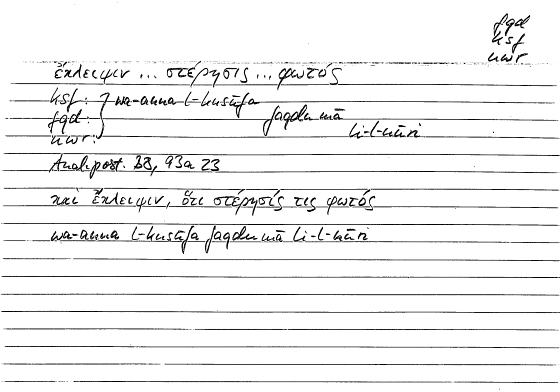 fqd
ksf
nwr
ἔκλειψιν ... στέρησις ... φωτός
ksf: } wa-anna l-kusūfa
fqd: } faqdu mā
nwr: } li-l-nūri
Anal. post. B8, 93a 23
καὶ ἔκλειψιν, ὅτι στέρησίς τις φωτός
wa-anna l-kusūfa faqdu mā li-l-nūri